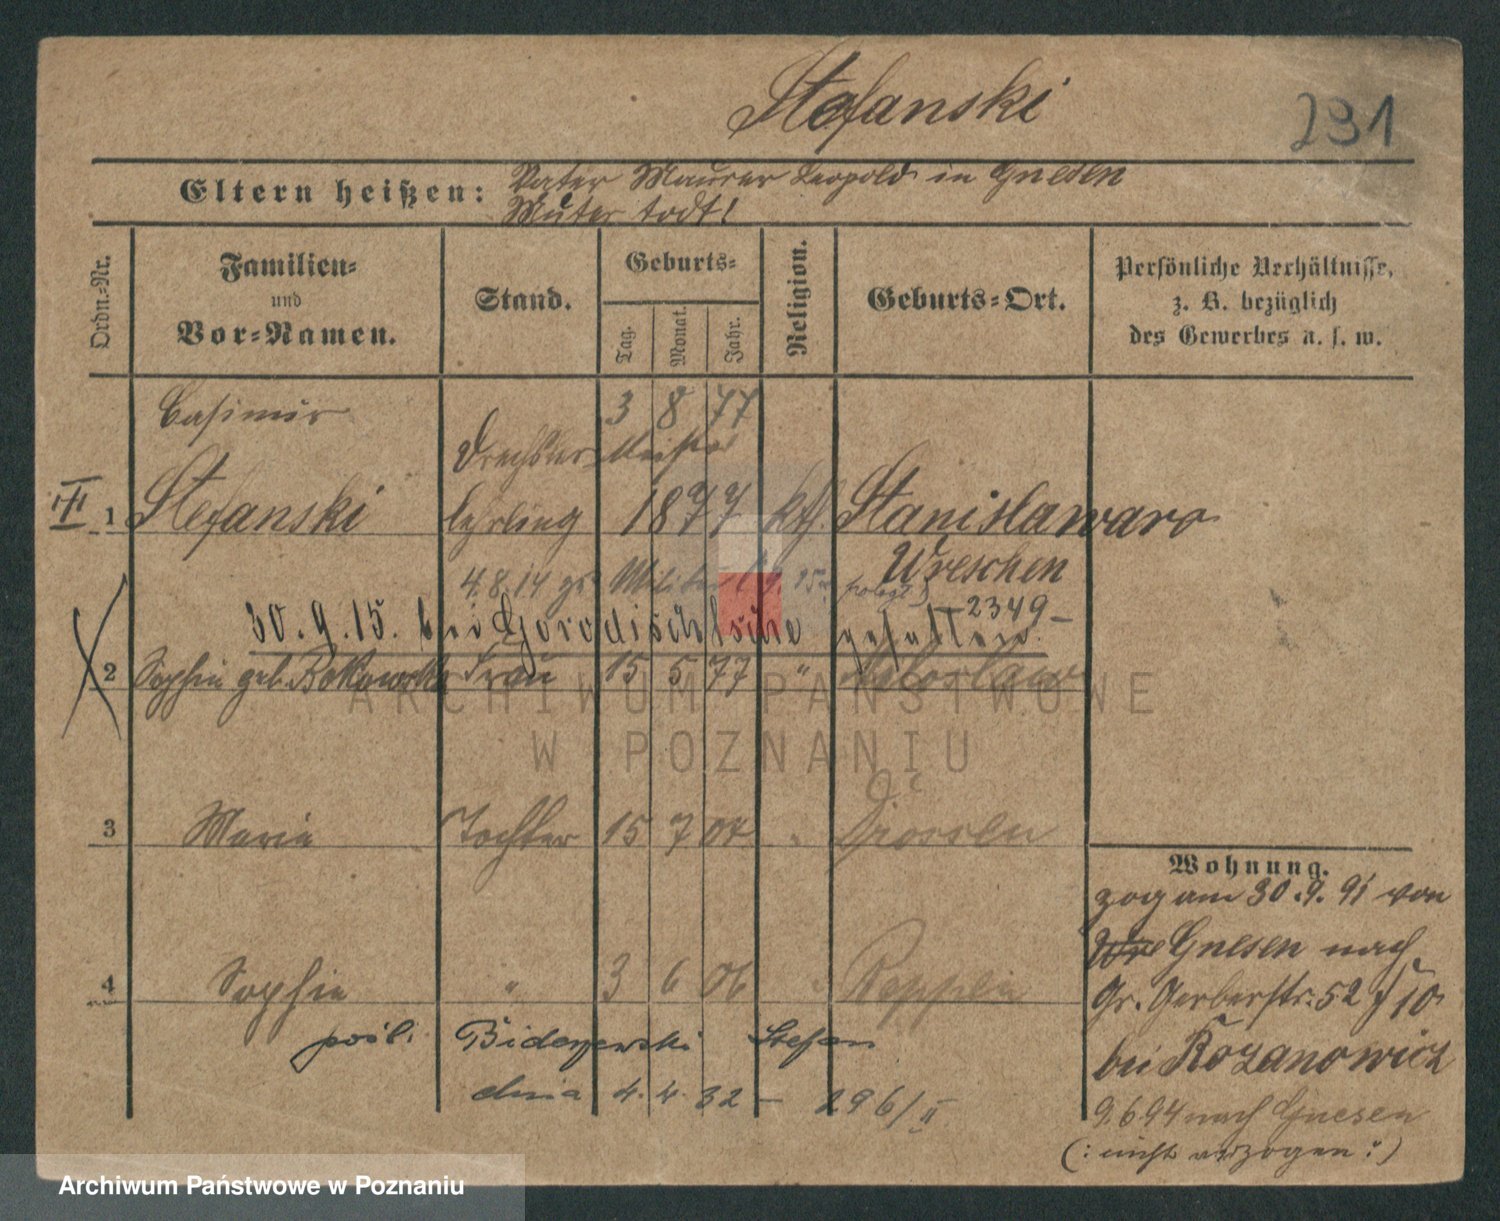 Stefanski
231
Eltern heißen: Vater Maurer Leopold in Gnesen
Mutter todt!
Ordn.-Nr.
Familien-
und
Vor-Namen.
Stand.
Geburts-
Tag.
Monat.
Jahr.
Religion.
Geburts-Ort.
Persönliche Verhältnisse,
z. B. bezüglich
des Gewerbes u. s. w.
Casimir 3 8 77
Drechsler Meister
III 1 Stefanski lehrling 1877 kth. Stanislawowo
Wreschen
4.8.14 Militär
2349
30.9.15. bei gefallen.
2 Sophie geb. Frau 15 5 77 " Miloslaw
3 Maria Tochter 15 7 04 " Drossen
4 Sophie " 3 6 06 " Reppen
pośl. Stefan
dnia 4.4.32 – 296/II
Wohnung.
zog am 30.9.91 von
Wre Gnesen nach
Gr. Gerberstr. 52
bei Rozanowicz
9.6.94 nach Gnesen
(: nicht verzogen :)
ARCHIWUM PAŃSTWOWE
W POZNANIU
Archiwum Państwowe w Poznaniu